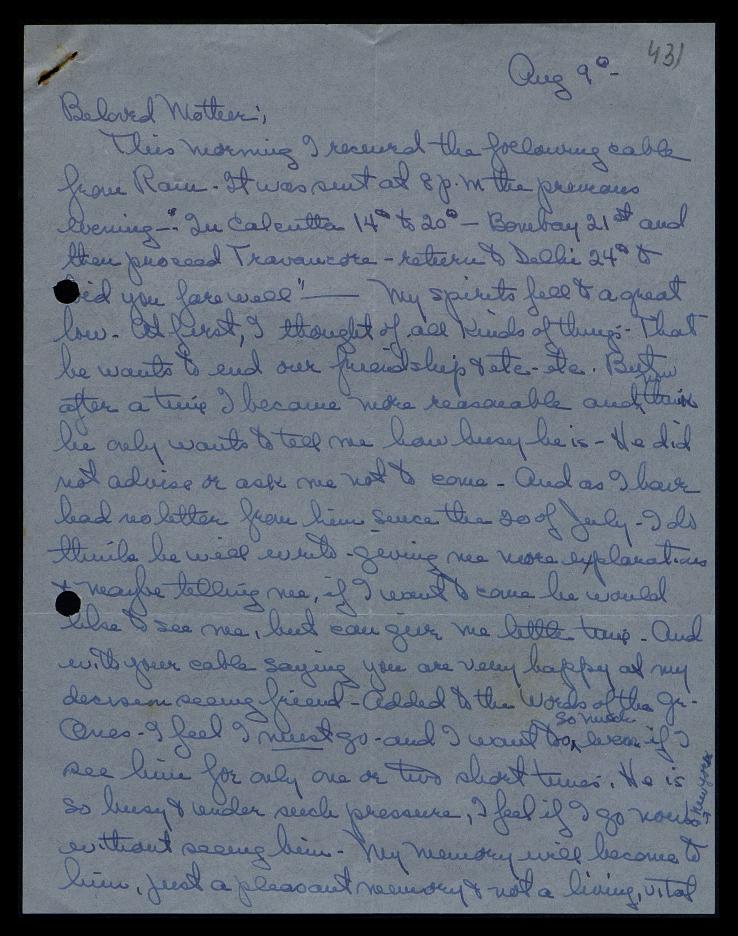 431
Aug 9º-
Beloved Mother;,
This morning I received the following cable
from Ram - It was sent at 8 p.m the previous
evening - "In Calcutta 14º to 20º - Bombay 21st and
then proceed Travancore - return to Delhi 24º to
bid you farewell" - My spirits fell to a great
low. At first, I thought of all kinds of things - That
he wants to end our friendship & etc - etc. But
after a time I became more reasonable and think
he only wants to tell me how busy he is - He did
not advise or ask me not to come - And as I have
had no letter from him since the 20 of July - I do
think he will write - giving me more explanations
& maybe telling me, if I want to come he would
like to see me, but can give me little time - And
with your cable saying you are very happy at my
decision seeing friend - Added to the words of the Gr-
Ones - I feel I must go - and I want to, so much even if I
see him for only one or two short times. He is
so busy & under such pressure, I feel if I go now to New York
without seeing him - My memory will become to
him, just a pleasant memory & not a living, vital